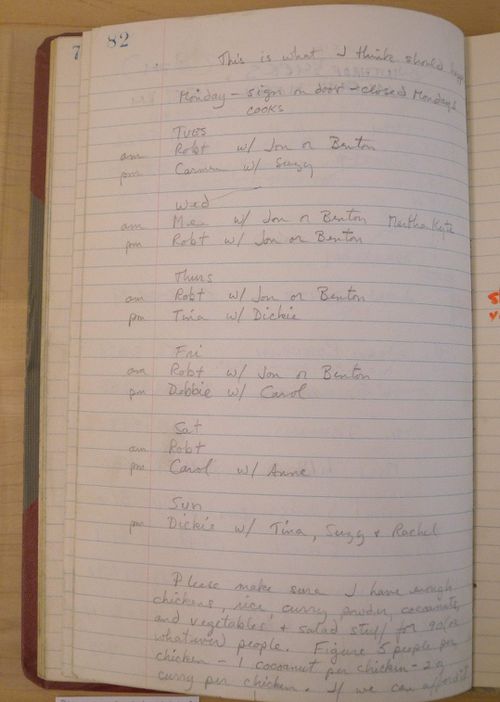 7 82
This is what I think should
Monday - sign on door - closed Mondays
cooks
Tues
am Robt w/ Jon or Benton
pm Carmen w/ Suzy
Wed
am Me w/ Jon or Benton Martha Kate
pm Robt w/ Jon or Benton
Thurs
am Robt w/ Jon or Benton
pm Tina w/ Dickie
Fri
am Robt w/ Jon or Benton
pm Debbie w/ Carol
Sat
am Robt
pm Carol w/ Anne
Sun
pm Dickie w/ Tina, Suzy + Rachel
Please make sure I have enough
chickens, rice, curry powder, cocoanuts,
and vegetables + salad stuff for 90 (or
whatever) people. Figure 5 people per
chicken - 1 cocoanut per chicken - 2
curry per chicken. If we can afford it